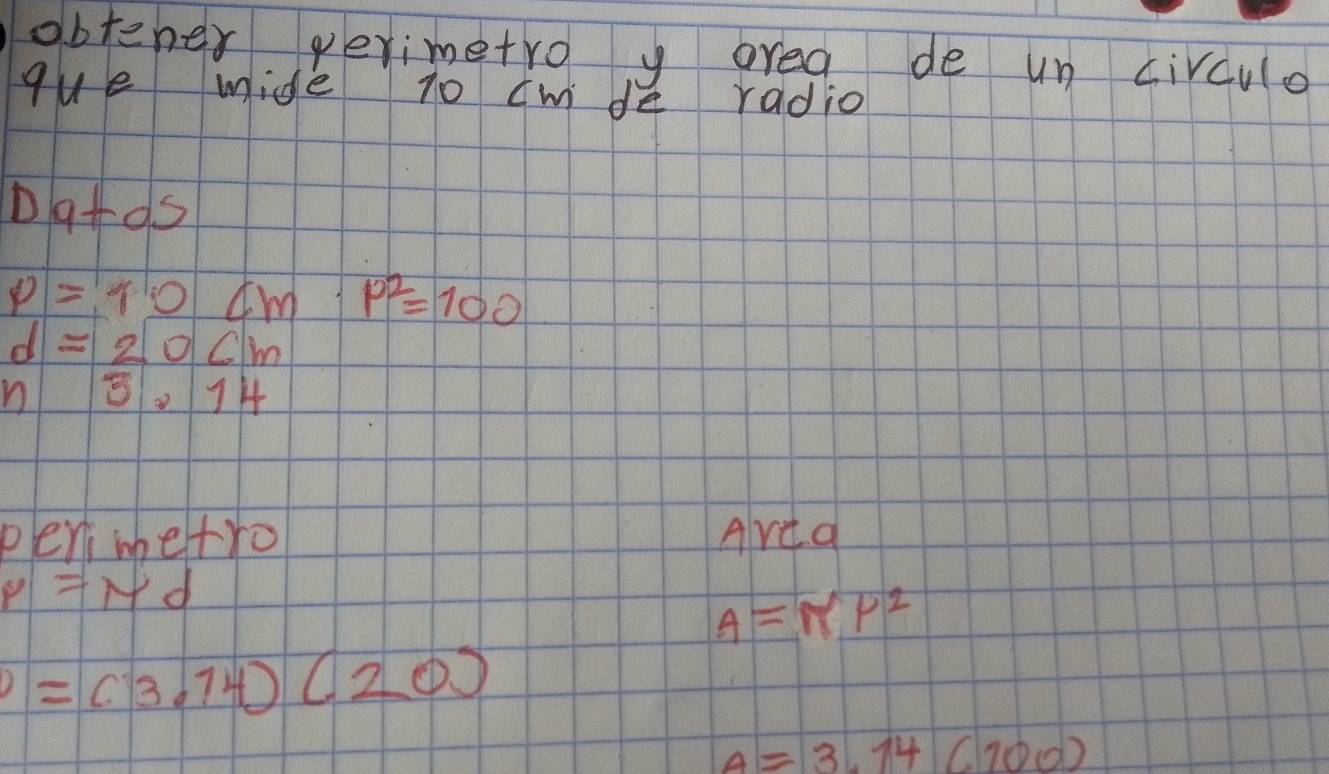 obtener perimetro y area de un circulo
que mide 10 cm de radio
Datos
r = 10 cm r²=100
d = 20 cm
π 3.14
perimetro
P = πd
P = (3.14) (20)
Area
A = πr²
A = 3.14 (100)